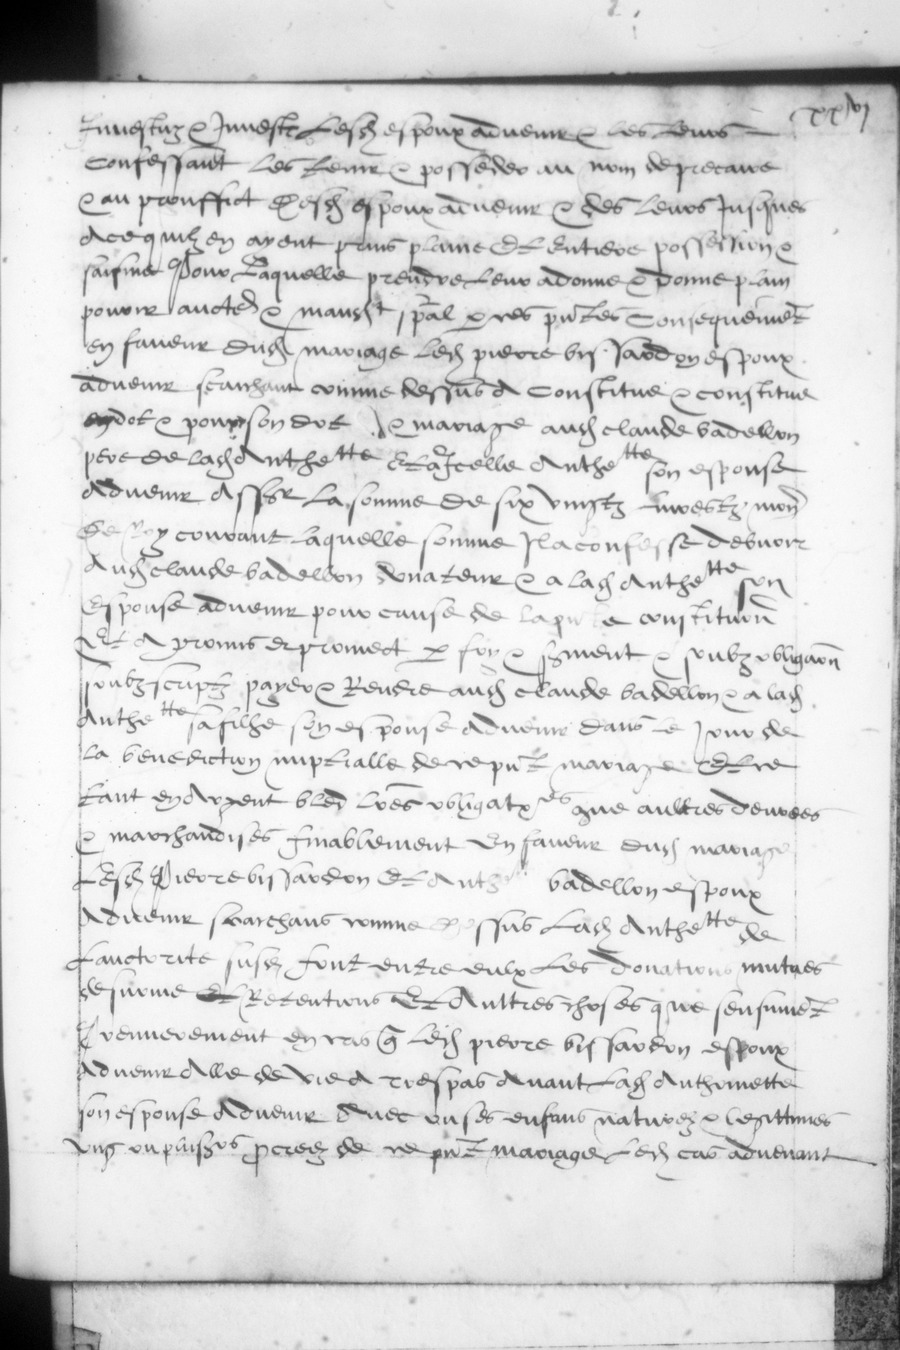 xxvj
Investuz & Investz lesd espoux advenir & les leurs
Confessant les tenir & posseder au nom de precaire
& au prouffict desd espoux advenir & des leurs Jusques
Ace quilz en ayent prins plaine Et entiere possession &
saisine Pour Laquelle prendre leur a donne & donne plain
pouvoir aucte & mandt spal p ces pntes Consequemet
en faveur dud mariage led pierre bissardon espoux
advenir comme dessus A Constitue & constitue
en dot & pour son dot & mariage aud claude badellon
pere de lad Anthette Et a Jcelle Anthette son espouse
Advenir Assr La somme de six vingtz mon
De Roy courant laquelle somme Jl a confesse debvoir
Aud claude badellon donateur & a lad Anthette son
Espouse advenir pour cause de la pnte constitution
Et A promis et promect p foy & sment & soubz obligaon
soubz scriptz payer & Rendre aud claude badellon & a lad
Anthette sa filhe son espouse Advenir dans le Jour de
la benediction nuptialle de ce pnt mariage Et ce
tant en Argent bled obligatres que aultres denrees
& marchandises finablement En faveur dud mariage
Lesd Pierre bissardon Et Anth badellon espoux
Advenir comme dessus Lad Anthette de
Lauctorite susd font entre eulx Les donations mutues
de survie Et Retentions Et Aultres choses que sensuivet
Premierement en cas q led pierre bissardon espoux
Advenir Alle de vie A trespas Avant Lad Anthoinette
son espouse Advenir Avec ou ses enfans naturez & legittimes
ung ou plusrs procreez de ce pnt mariage Led cas advenant